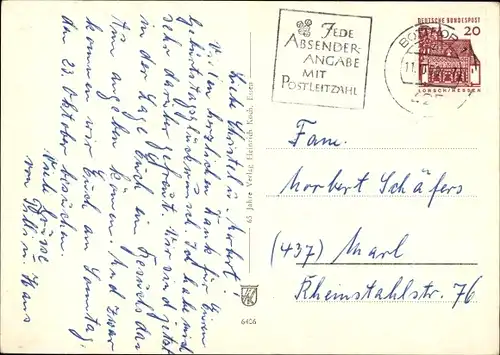 Liebe Christel u. Norbert!
Vielen herzlichen Dank für Euren
Geburtstagsglückwunsch. Ich habe mich
sehr darüber gefreut. Wir sind jetzt
in der Lage Euch ein Besuchs
angeben können. Und zwar
kommen wir Euch am Sonntag,
den 23. Oktober besuchen.
Viele Grüsse
von Willi u. Hans
65 Jahre Verlag Heinrich Koch, Essen
6406
JEDE
ABSENDER-
ANGABE
MIT
POSTLEITZAHL
DEUTSCHE BUNDESPOST
20
LORSCH/HESSEN
BOTTROP
11.
Fam.
Norbert Schäfers
(437) Marl
Rheinstahlstr. 76